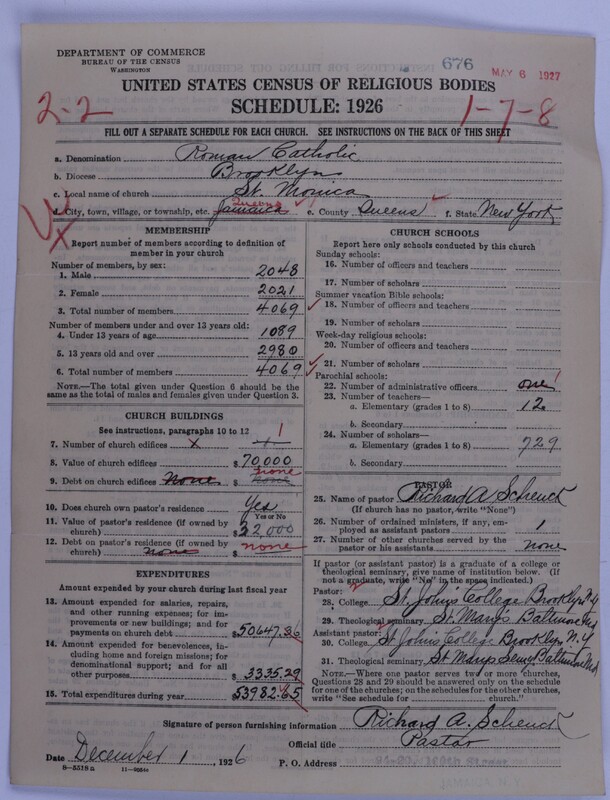 676
MAY 6 1927
DEPARTMENT OF COMMERCE
BUREAU OF THE CENSUS
WASHINGTON
UNITED STATES CENSUS OF RELIGIOUS BODIES
SCHEDULE: 1926
2-2
1-7-8
FILL OUT A SEPARATE SCHEDULE FOR EACH CHURCH. SEE INSTRUCTIONS ON THE BACK OF THIS SHEET
a. Denomination Roman Catholic
b. Diocese Brooklyn
c. Local name of church St. Monica
d. City, town, village, or township, etc. Jamaica Queens e. County Queens f. State New York
MEMBERSHIP
Report number of members according to definition of member in your church
Number of members, by sex:
1. Male 2048
2. Female 2021
3. Total number of members 4069
Number of members under and over 13 years old:
4. Under 13 years of age 1089
5. 13 years old and over 2980
6. Total number of members 4069
NOTE.—The total given under Question 6 should be the same as the total of males and females given under Question 3.
CHURCH BUILDINGS
See instructions, paragraphs 10 to 12
7. Number of church edifices x 1
8. Value of church edifices $ 70,000
9. Debt on church edifices None $ none none
10. Does church own pastor's residence Yes
Yes or No
11. Value of pastor's residence (if owned by church) $ 32,000
12. Debt on pastor's residence (if owned by church) none $ none
EXPENDITURES
Amount expended by your church during last fiscal year
13. Amount expended for salaries, repairs, and other running expenses; for improvements or new buildings; and for payments on church debt $ 50647.36
14. Amount expended for benevolences, including home and foreign missions; for denominational support; and for all other purposes $ 3335.29
15. Total expenditures during year $ 53982.65
CHURCH SCHOOLS
Report here only schools conducted by this church
Sunday schools:
16. Number of officers and teachers
17. Number of scholars
Summer vacation Bible schools:
18. Number of officers and teachers
19. Number of scholars
Week-day religious schools:
20. Number of officers and teachers
21. Number of scholars
Parochial schools:
22. Number of administrative officers one
23. Number of teachers—
a. Elementary (grades 1 to 8) 12
b. Secondary
24. Number of scholars—
a. Elementary (grades 1 to 8) 729
b. Secondary
PASTOR
25. Name of pastor Richard A. Schenck
(If church has no pastor, write "None")
26. Number of ordained ministers, if any, employed as assistant pastors 1
27. Number of other churches served by the pastor or his assistants None
If pastor (or assistant pastor) is a graduate of a college or theological seminary, give name of institution below. (If not a graduate, write "No" in the space indicated.)
Pastor:
28. College St. John's College Brooklyn N.Y.
29. Theological seminary St. Marys Baltimore Md
Assistant pastor:
30. College St John's College Brooklyn N.Y
31. Theological seminary St Marys Semy Baltimore Md
NOTE.—Where one pastor serves two or more churches, Questions 28 and 29 should be answered only on the schedule for one of the churches; on the schedules for the other churches, write "See schedule for church."
Signature of person furnishing information Richard A. Schenck
Official title Pastor
Date December 1, 1926
P. O. Address
8-5318a